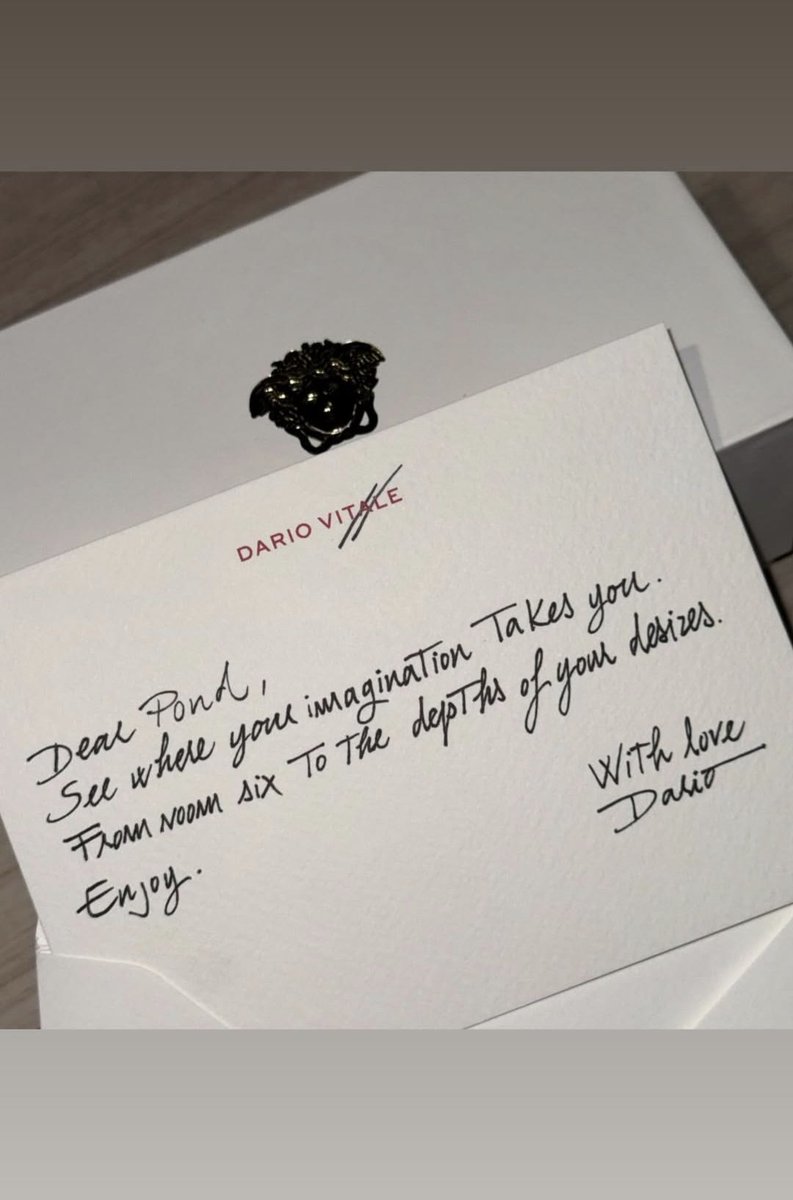 DARIO VITALE
Dear Pond,
See where your imagination takes you.
From room six to the depths of your desires.
Enjoy.
With love
Dario